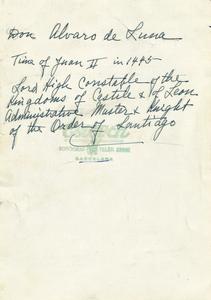 Don Alvaro de Luna
Time of Juan II in 1445
Lord High Constable of the
Kingdoms of Castile & of Leon
Administrative Master & Knight
of the Order of Santiago
BARCELONA